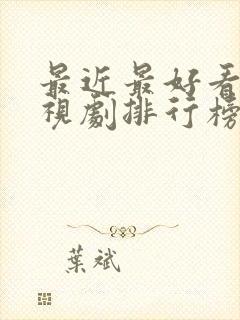 最近最好看
視劇排行榜
葉斌